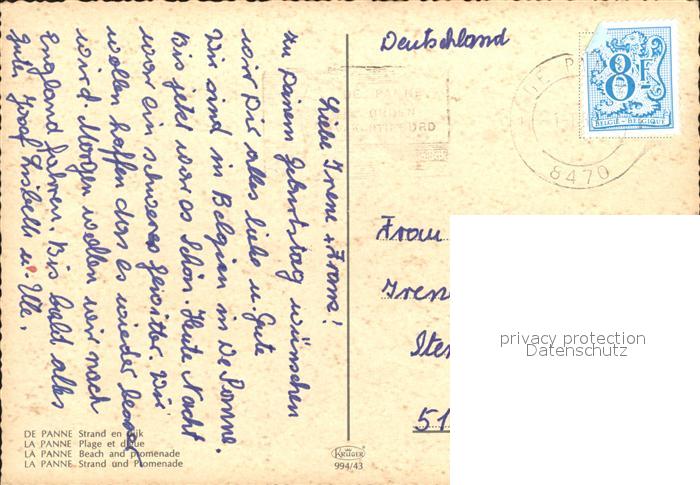 Liebe Irene + Franz!
zu Deinem Geburtstag wünschen
wir Dir alles liebe u. Gute
Wir sind in Belgien in De Panne.
Bis jetzt war es Schön. Heute Nacht
war ein schweres Gewitter. Wir
wollen hoffen das es wieder besser
wird Morgen wollen wir nach
England fahren. Bis bald alles
gute Josef Lisbeth u. Ule.
DE PANNE Strand en dijk
LA PANNE Plage et digue
LA PANNE Beach and promenade
LA PANNE Strand und Promenade
KRÜGER
994/43
Deutschland
8F
BELGIË - BELGIQUE
DE PANNE
8470
Frau
Iren
Ste
51
privacy protection
Datenschutz